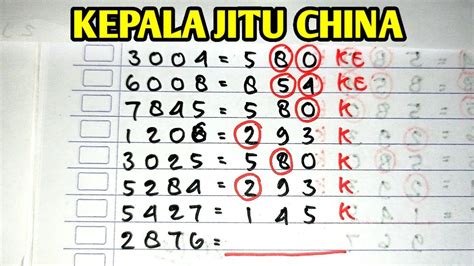 KEPALA JITU CHINA
3004 = 580 KE
6008 = 854 KE
7845 = 580 K
1208 = 293 K
3025 = 580 K
5284 = 293 K
5427 = 145 K
2876 =